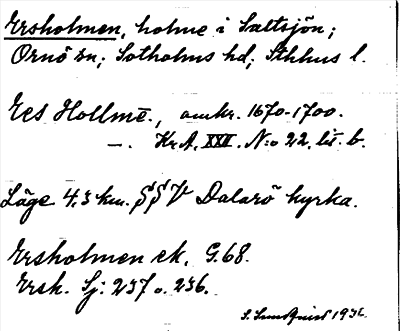 Ersholmen, holme i Saltsjön;
Ornö sn; Sotholms hd; Sthlms l.
Ers Hollmē., omkr. 1670-1700.
—. Kr.A. XXII. N:o 22. lit. b.
Läge 4,3 km. SSV Dalarö kyrka.
Ersholmen ek. G.68.
Ersh. Sj: 237 o. 236.
S. Sundquist 1932.